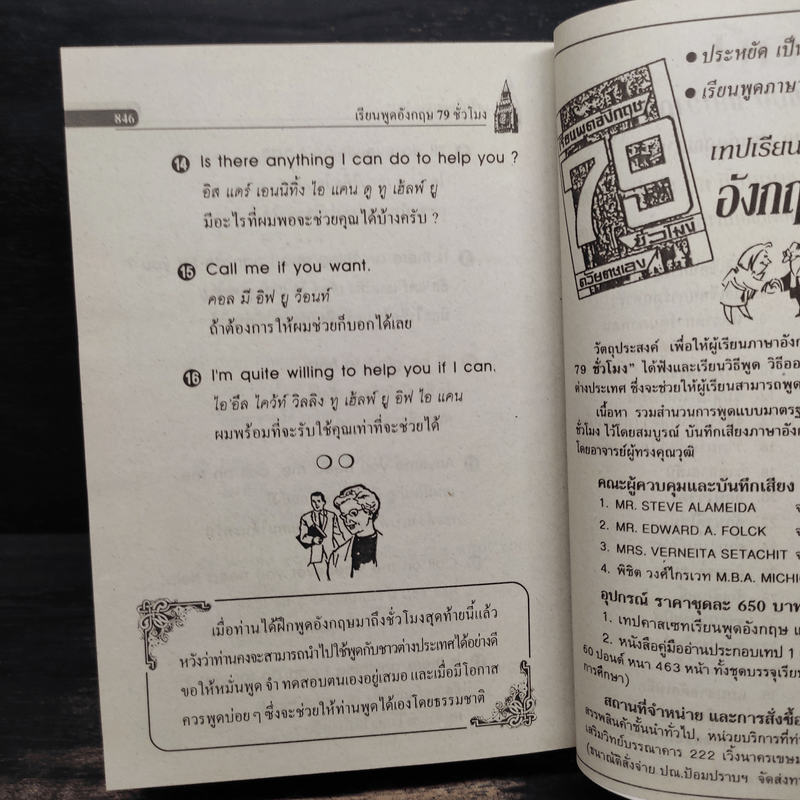 846
เรียนพูดอังกฤษ 79 ชั่วโมง
14 Is there anything I can do to help you ?
อิส แดร์ เอนนิทิ้ง ไอ แคน ดู ทู เฮ้ลพ์ ยู
มีอะไรที่ผมพอจะช่วยคุณได้บ้างครับ ?
15 Call me if you want.
คอล มี อิฟ ยู ว็อนท์
ถ้าต้องการให้ผมช่วยก็บอกได้เลย
16 I'm quite willing to help you if I can.
ไอ'อึล ไคว้ท์ วิลลิง ทู เฮ้ลพ์ ยู อิฟ ไอ แคน
ผมพร้อมที่จะรับใช้คุณเท่าที่จะช่วยได้
เมื่อท่านได้ฝึกพูดอังกฤษมาถึงชั่วโมงสุดท้ายนี้แล้ว
หวังว่าท่านคงจะสามารถนำไปใช้พูดกับชาวต่างประเทศได้อย่างดี
ขอให้หมั่นพูด จำ ทดสอบตนเองอยู่เสมอ และเมื่อมีโอกาส
ควรพูดบ่อย ๆ ซึ่งจะช่วยให้ท่านพูดได้เองโดยธรรมชาติ
● ประหยัด เป็
● เรียนพูดภาษา
เรียนพูดอังกฤษ
79
ชั่วโมง
ด้วยตนเอง
เทปเรียน
อังกฤ
วัตถุประสงค์ เพื่อให้ผู้เรียนภาษาอังก
79 ชั่วโมง" ได้ฟังและเรียนวิธีพูด วิธีออ
ต่างประเทศ ซึ่งจะช่วยให้ผู้เรียนสามารถพูด
เนื้อหา รวมสำนวนการพูดแบบมาตรฐ
ชั่วโมง ไว้โดยสมบูรณ์ บันทึกเสียงภาษาอังก
โดยอาจารย์ผู้ทรงคุณวุฒิ
คณะผู้ควบคุมและบันทึกเสียง
1. MR. STEVE ALAMEIDA
2. MR. EDWARD A. FOLCK
3. MRS. VERNEITA SETACHIT
4. พิชิต วงศ์ไกรเวท M.B.A. MICHI
อุปกรณ์ ราคาชุดละ 650 บาท
1. เทปคาสเซทเรียนพูดอังกฤษ แ
2. หนังสือคู่มืออ่านประกอบเทป 1
60 ปอนด์ หนา 463 หน้า ทั้งชุดบรรจุเรีย
การศึกษา)
สถานที่จำหน่าย และการสั่งซื้อ
สรรพสินค้าชั้นนำทั่วไป, หน่วยบริการที่ท
เสริมวิทย์บรรณาคาร 222 เวิ้งนาครเขษม
(ธนาณัติสั่งจ่าย ปณ.ป้อมปราบฯ จัดส่งทา